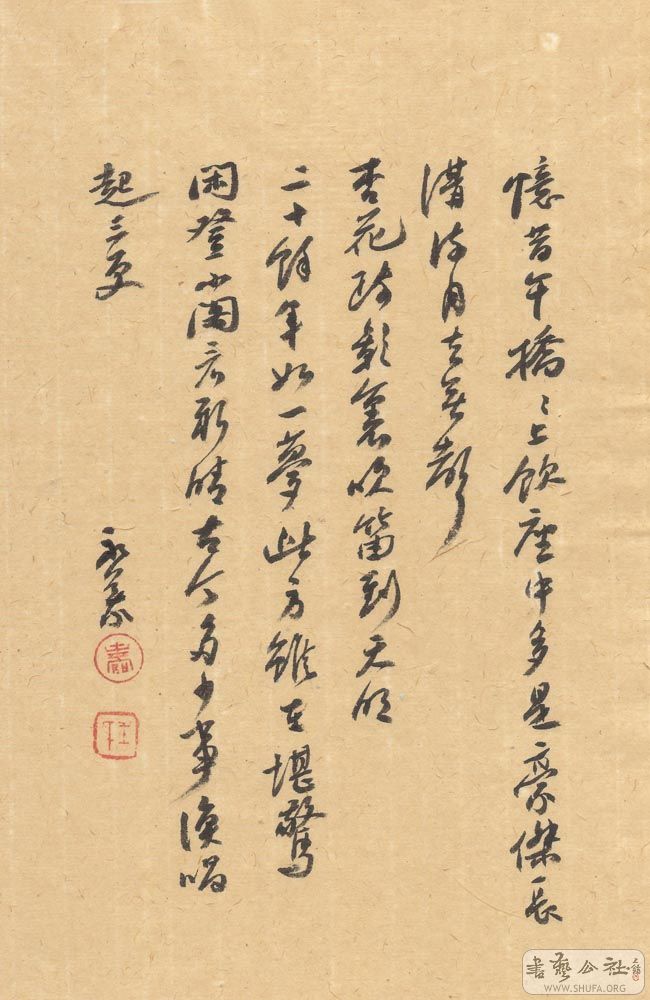 憶昔午橋〻上飲座中多是豪傑長
溝流月去無聲
杏花疏影裏吹笛到天明
二十餘年如一夢此身雖在堪驚
閑登小閣看新晴古今多少事漁唱
起三更
書藝公社
WWW.SHUFA.ORG